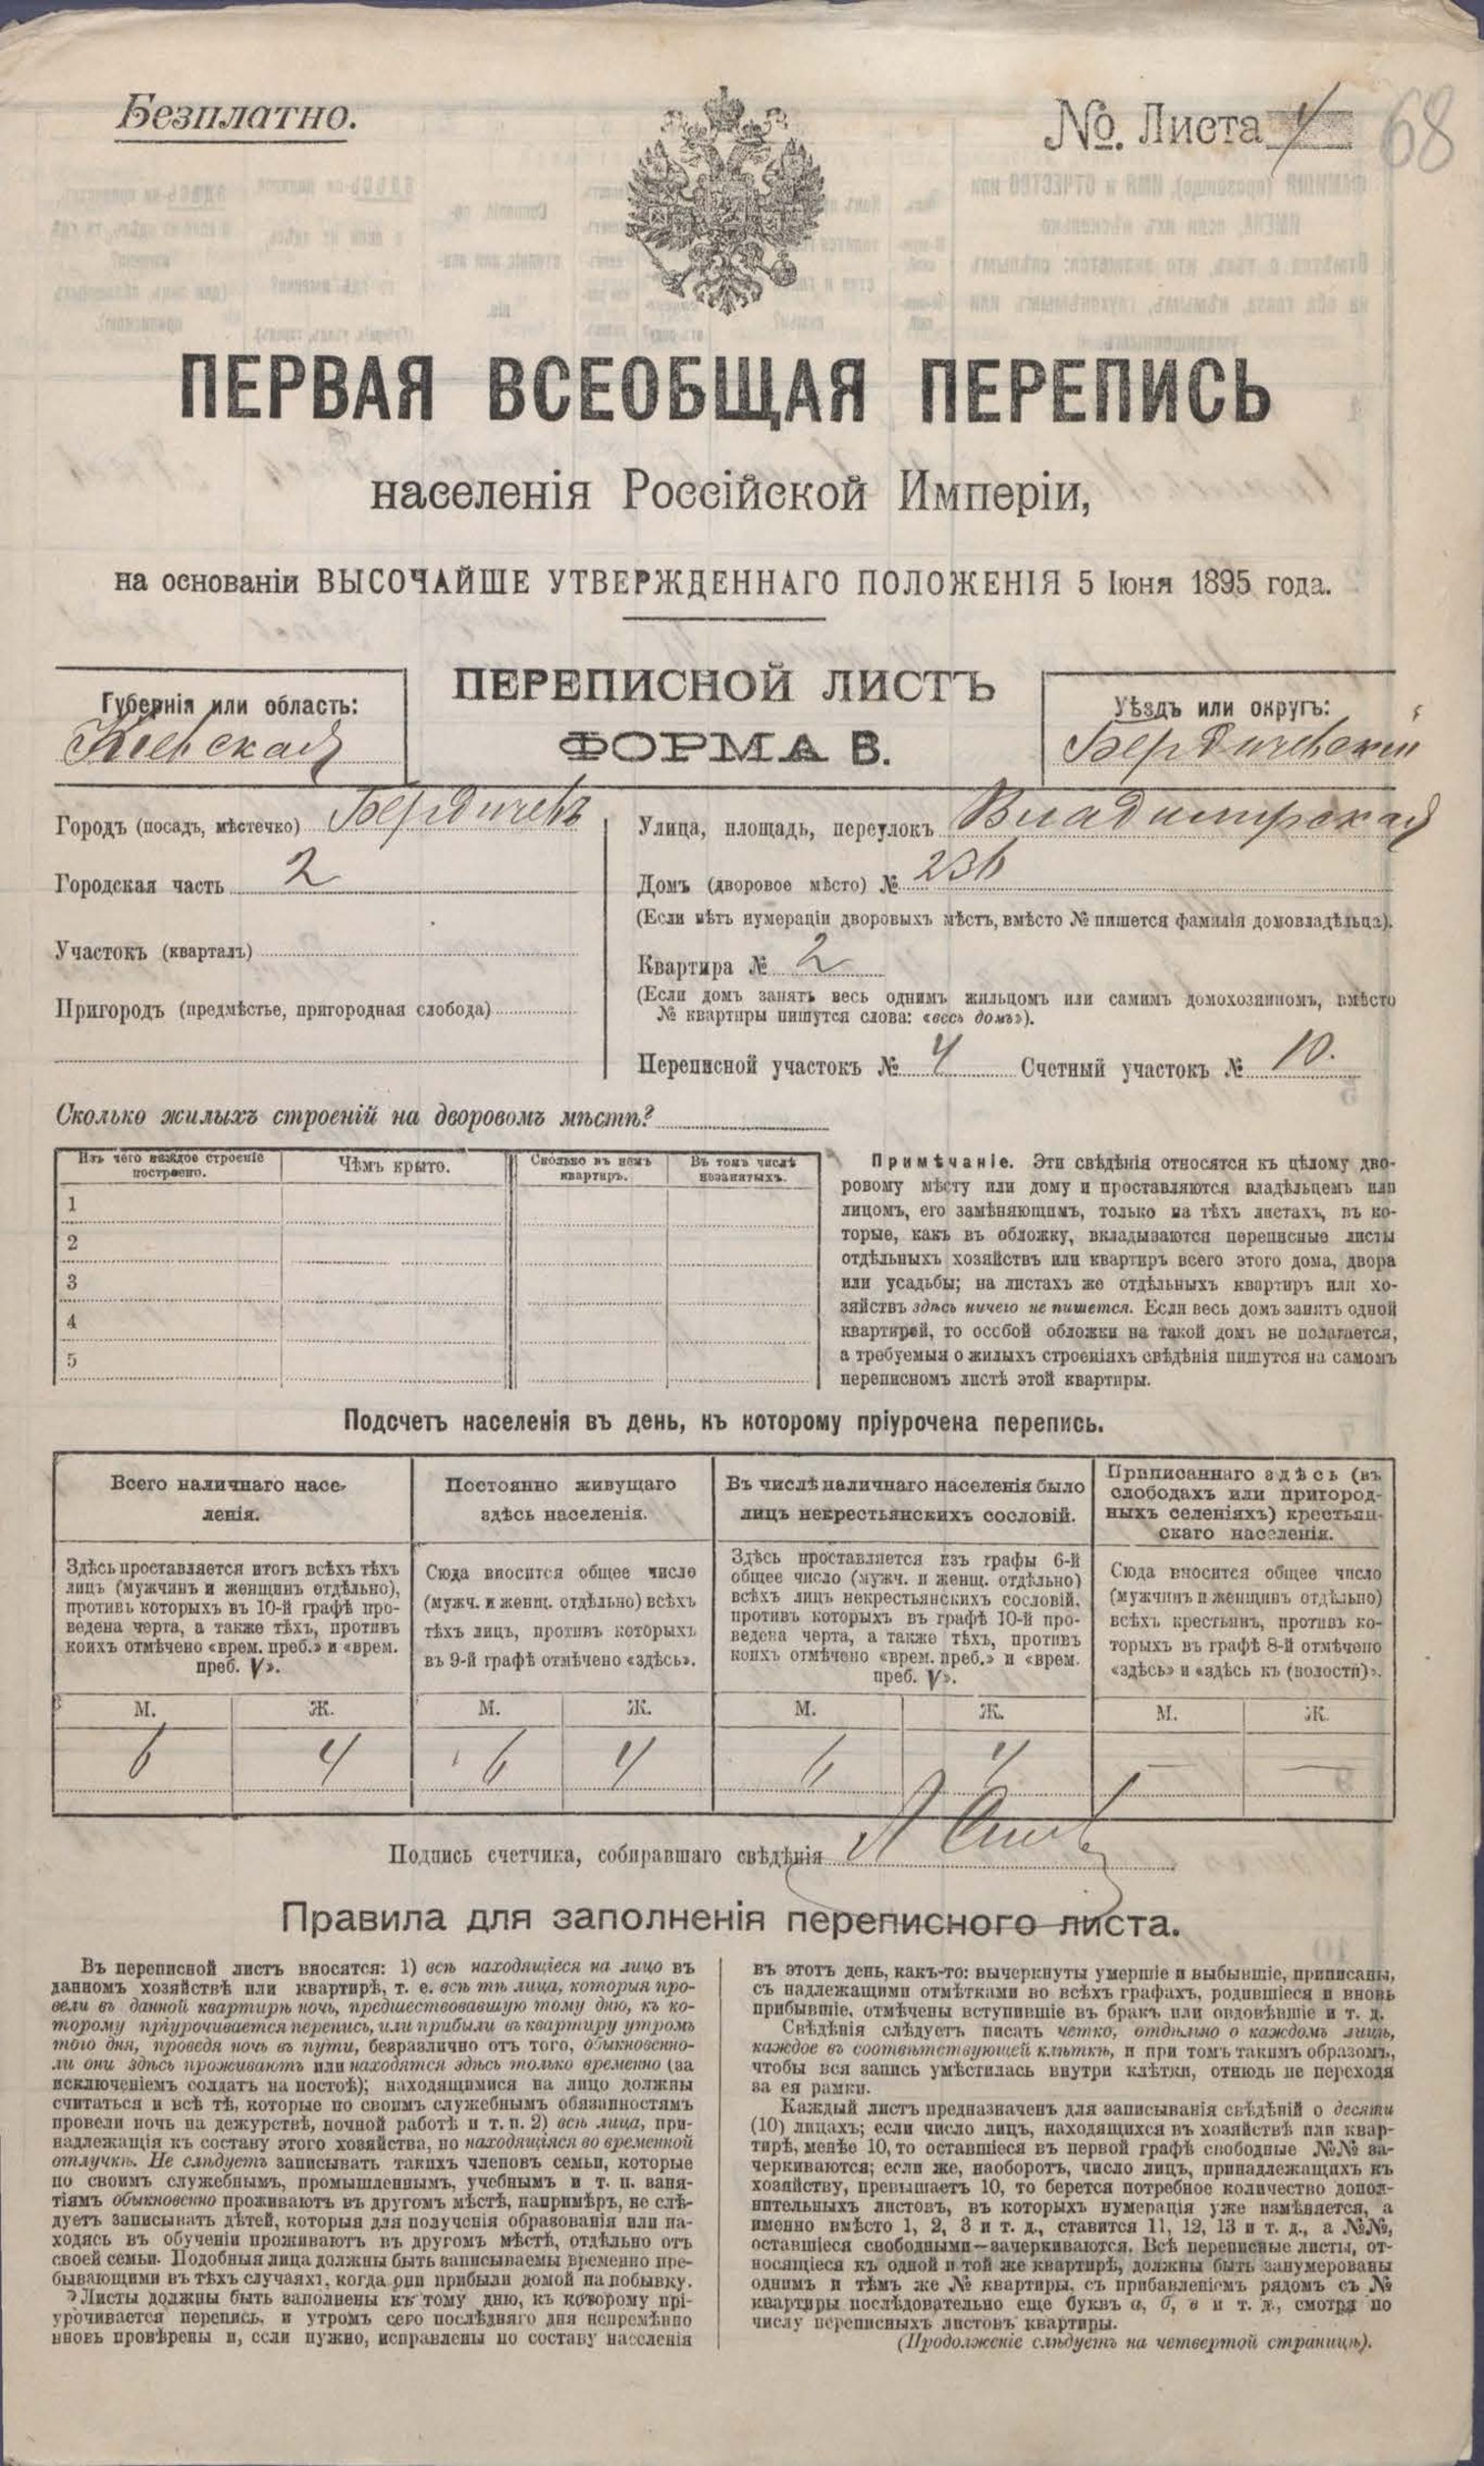 Безплатно.
№. Листа 4
68
ПЕРВАЯ ВСЕОБЩАЯ ПЕРЕПИСЬ
населенія Россійской Имперіи,
на основаніи ВЫСОЧАЙШЕ УТВЕРЖДЕННАГО ПОЛОЖЕНІЯ 5 Іюня 1895 года.
Губернія или область:
Кіевская
ПЕРЕПИСНОЙ ЛИСТЪ
ФОРМА В.
Уѣздъ или округъ:
Бердичевскій
Городъ (посадъ, мѣстечко) Бердичевъ
Городская часть 2
Участокъ (кварталъ)
Пригородъ (предмѣстье, пригородная слобода)
Улица, площадь, переулокъ Владимирская
Домъ (дворовое мѣсто) № 236
(Если нѣтъ нумераціи дворовыхъ мѣстъ, вмѣсто № пишется фамилія домовладѣльца).
Квартира № 2
(Если домъ занятъ весь однимъ жильцомъ или самимъ домохозяиномъ, вмѣсто
№ квартиры пишутся слова: «весь домъ»).
Переписной участокъ № 4 Счетный участокъ № 10.
Сколько жилыхъ строеній на дворовомъ мѣстѣ?
Изъ чего каждое строеніе
построено.
Чѣмъ крыто.
Сколько въ немъ
квартиръ.
Въ томъ числѣ
незанятыхъ.
1
2
3
4
5
Примѣчаніе. Эти свѣдѣнія относятся къ цѣлому дво-
ровому мѣсту или дому и проставляются владѣльцемъ или
лицомъ, его замѣняющимъ, только на тѣхъ листахъ, въ ко-
торые, какъ въ обложку, вкладываются переписные листы
отдѣльныхъ хозяйствъ или квартиръ всего этого дома, двора
или усадьбы; на листахъ же отдѣльныхъ квартиръ или хо-
зяйствъ здѣсь ничего не пишется. Если весь домъ занятъ одной
квартирой, то особой обложки на такой домъ не полагается,
а требуемыя о жилыхъ строеніяхъ свѣдѣнія пишутся на самомъ
переписномъ листѣ этой квартиры.
Подсчетъ населенія въ день, къ которому пріурочена перепись.
Всего наличнаго насе-
ленія.
Постоянно живущаго
здѣсь населенія.
Въ числѣ наличнаго населенія было
лицъ некрестьянскихъ сословій.
Приписаннаго здѣсь (въ
слободахъ или пригород-
ныхъ селеніяхъ) крестьян-
скаго населенія.
Здѣсь проставляется итогъ всѣхъ тѣхъ
лицъ (мужчинъ и женщинъ отдѣльно),
противъ которыхъ въ 10-й графѣ про-
ведена черта, а также тѣхъ, противъ
коихъ отмѣчено «врем. преб.» и «врем.
преб. V».
Сюда вносится общее число
(мужч. и женщ. отдѣльно) всѣхъ
тѣхъ лицъ, противъ которыхъ
въ 9-й графѣ отмѣчено «здѣсь».
Здѣсь проставляется изъ графы 6-й
общее число (мужч. и женщ. отдѣльно)
всѣхъ лицъ некрестьянскихъ сословій,
противъ которыхъ въ графѣ 10-й про-
ведена черта, а также тѣхъ, противъ
коихъ отмѣчено «врем. преб.» и «врем.
преб. V».
Сюда вносится общее число
(мужчинъ и женщинъ отдѣльно)
всѣхъ крестьянъ, противъ ко-
торыхъ въ графѣ 8-й отмѣчено
«здѣсь» и «здѣсь къ (волости)».
М. Ж. М. Ж. М. Ж. М. Ж.
6 4 6 4 6 4 — —
Подпись счетчика, собиравшаго свѣдѣнія
Правила для заполненія переписного листа.
Въ переписной листъ вносятся: 1) всѣ находящіеся на лицо въ
данномъ хозяйствѣ или квартирѣ, т. е. всѣ тѣ лица, которыя про-
вели въ данной квартирѣ ночь, предшествовавшую тому дню, къ ко-
торому пріурочивается перепись, или прибыли въ квартиру утромъ
того дня, проведя ночь въ пути, безразлично отъ того, обыкновенно-
ли они здѣсь проживаютъ или находятся здѣсь только временно (за
исключеніемъ солдатъ на постоѣ); находящимися на лицо должны
считаться и всѣ тѣ, которые по своимъ служебнымъ обязанностямъ
провели ночь на дежурствѣ, ночной работѣ и т. п. 2) всѣ лица, при-
надлежащія къ составу этого хозяйства, но находящіяся во временной
отлучкѣ. Не слѣдуетъ записывать такихъ членовъ семьи, которые
по своимъ служебнымъ, промышленнымъ, учебнымъ и т. п. заня-
тіямъ обыкновенно проживаютъ въ другомъ мѣстѣ, напримѣръ, не слѣ-
дуетъ записывать дѣтей, которыя для полученія образованія или на-
ходясь въ обученіи проживаютъ въ другомъ мѣстѣ, отдѣльно отъ
своей семьи. Подобныя лица должны быть записываемы временно пре-
бывающими въ тѣхъ случаяхъ, когда они прибыли домой на побывку.
Листы должны быть заполнены къ тому дню, къ которому прі-
урочивается перепись, и утромъ сего послѣдняго дня непремѣнно
вновь провѣрены и, если нужно, исправлены по составу населенія
въ этотъ день, какъ-то: вычеркнуты умершіе и выбывшіе, приписаны,
съ надлежащими отмѣтками во всѣхъ графахъ, родившіеся и вновь
прибывшіе, отмѣчены вступившіе въ бракъ или овдовѣвшіе и т. д.
Свѣдѣнія слѣдуетъ писать четко, отдѣльно о каждомъ лицѣ,
каждое въ соотвѣтствующей клѣткѣ, и при томъ такимъ образомъ,
чтобы вся запись умѣстилась внутри клѣтки, отнюдь не переходя
за ея рамки.
Каждый листъ предназначенъ для записыванія свѣдѣній о десяти
(10) лицахъ; если число лицъ, находящихся въ хозяйствѣ или квар-
тирѣ, менѣе 10, то оставшіеся въ первой графѣ свободные №№ за-
черкиваются; если же, наоборотъ, число лицъ, принадлежащихъ къ
хозяйству, превышаетъ 10, то берется потребное количество допол-
нительныхъ листовъ, въ которыхъ нумерація уже измѣняется, а
именно вмѣсто 1, 2, 3 и т. д., ставится 11, 12, 13 и т. д., а №№,
оставшіеся свободными—зачеркиваются. Всѣ переписные листы, от-
носящіеся къ одной и той же квартирѣ, должны быть занумерованы
однимъ и тѣмъ же № квартиры, съ прибавленіемъ рядомъ съ №
квартиры послѣдовательно еще буквъ а, б, в и т. д., смотря по
числу переписныхъ листовъ квартиры.
(Продолженіе слѣдуетъ на четвертой страницѣ).